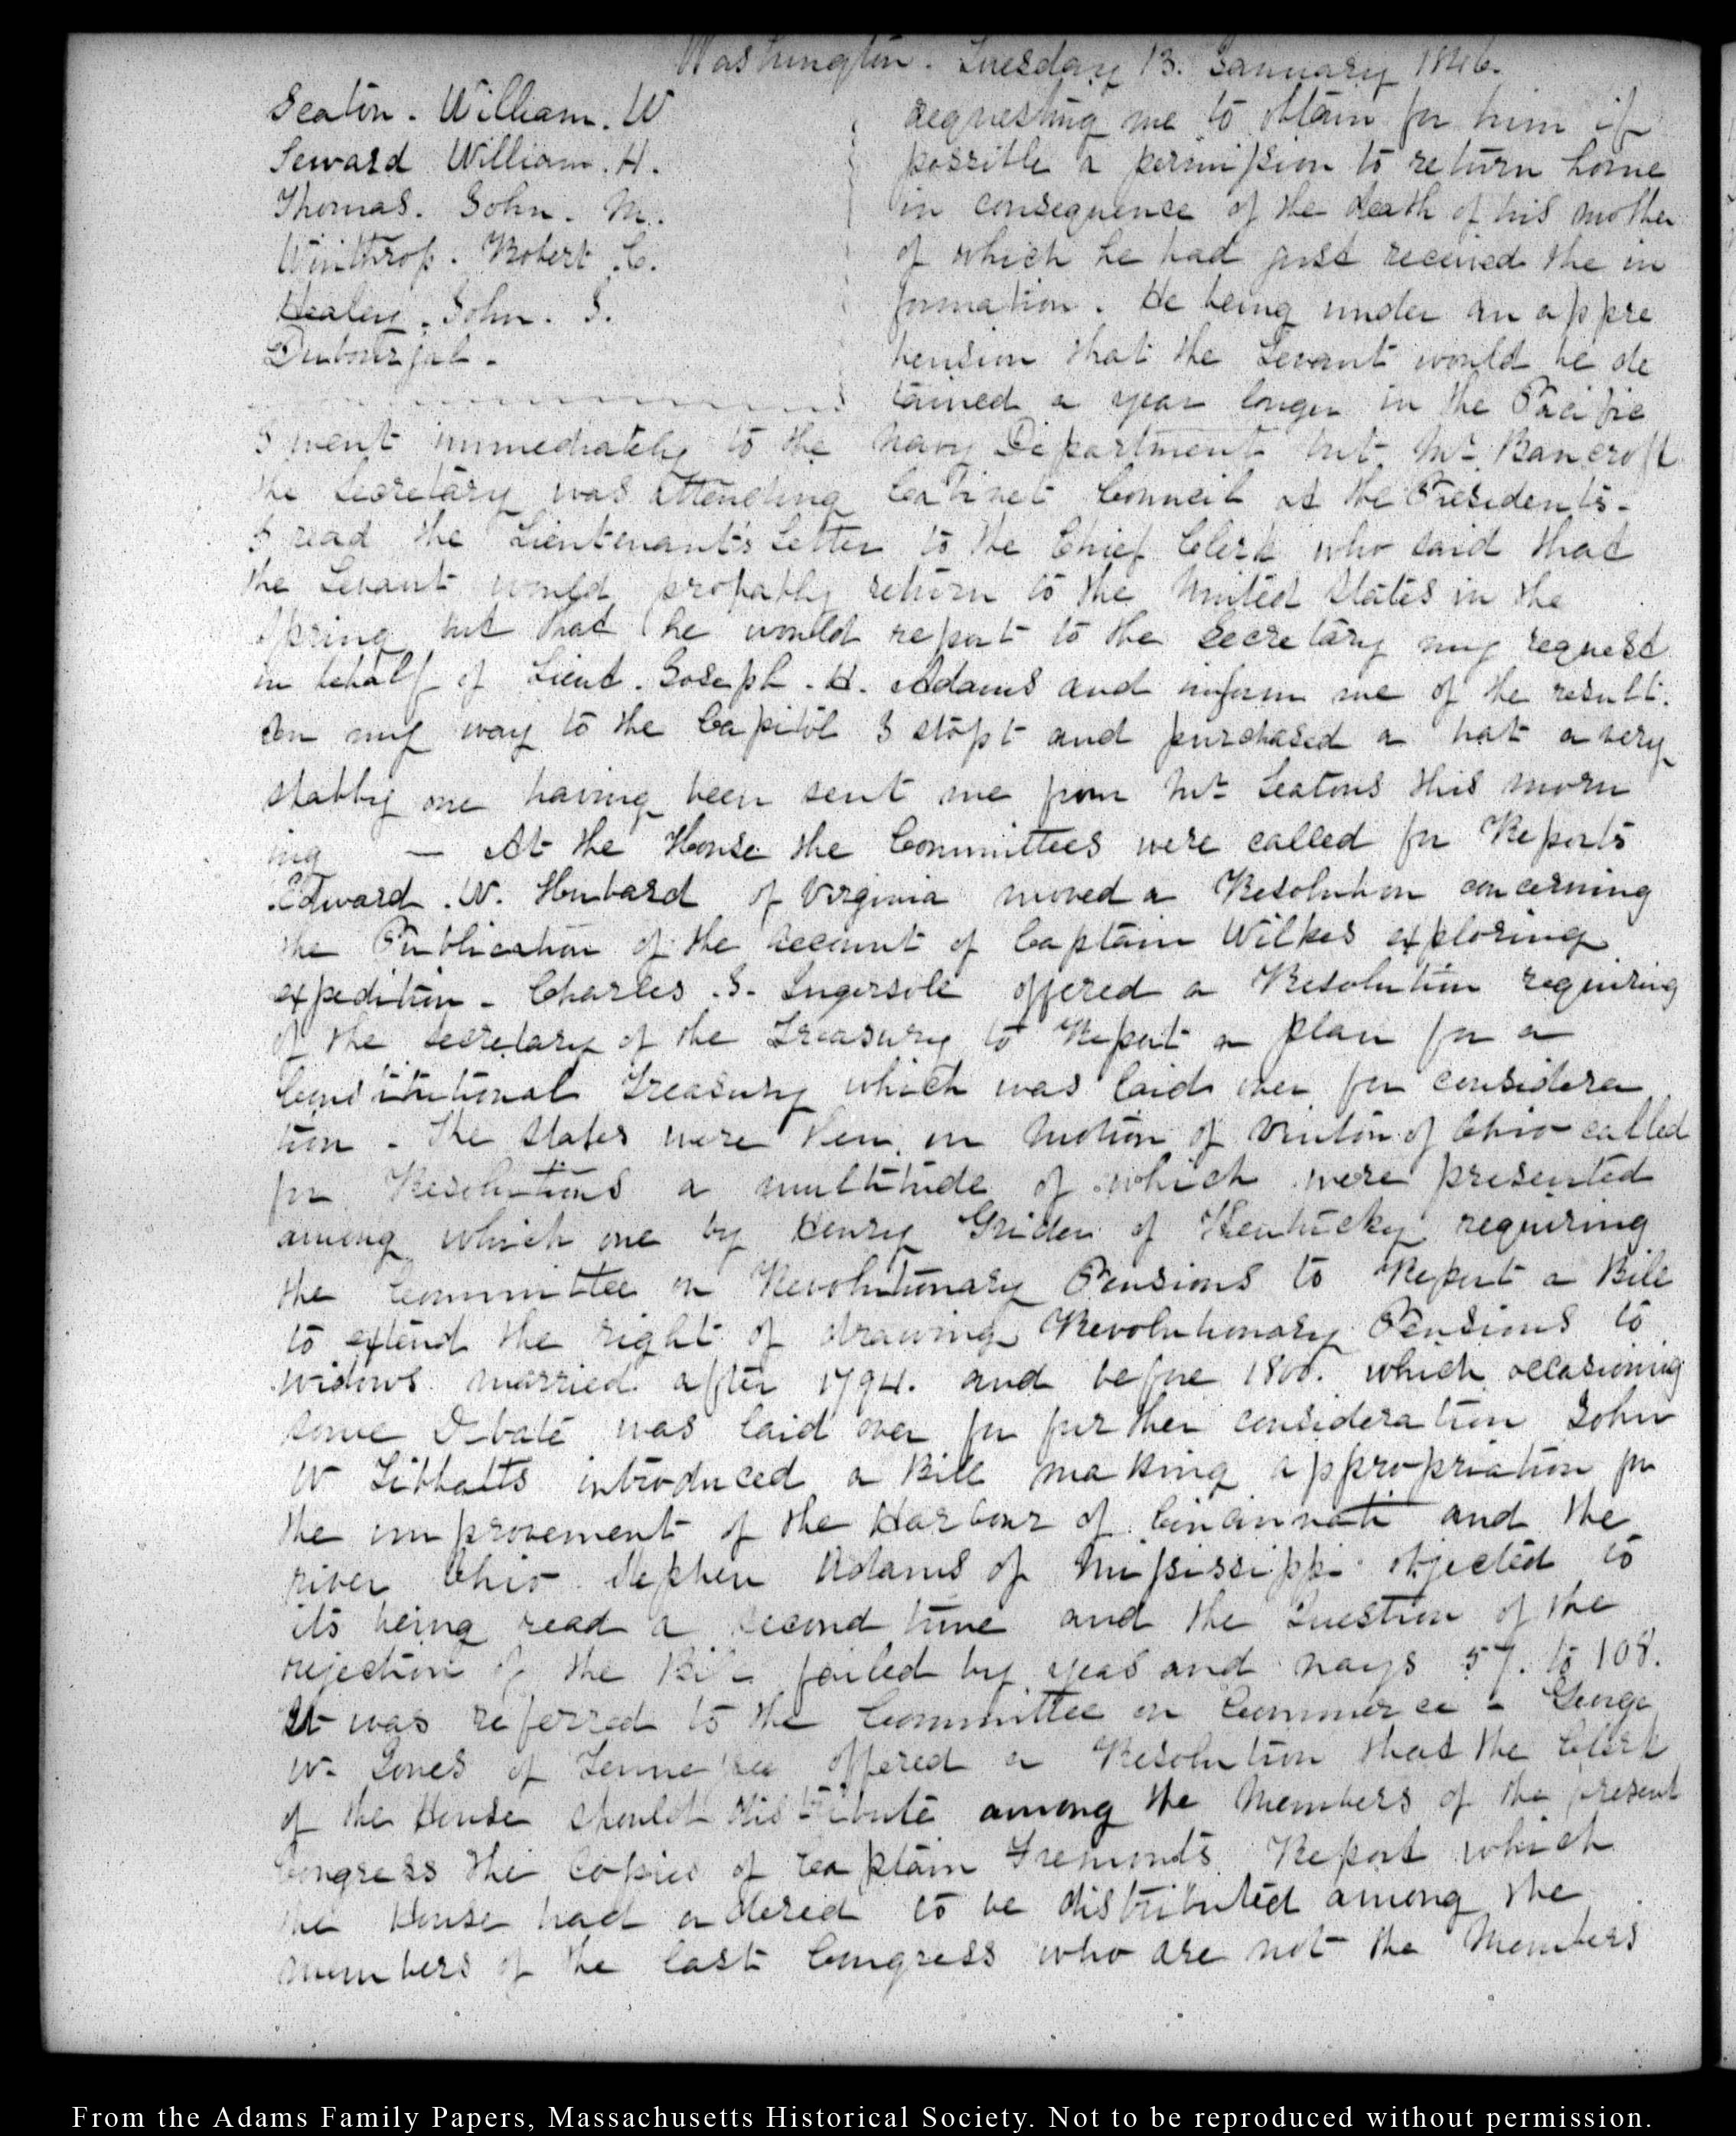 Washington. Tuesday 13. January 1846.
Seaton. William. W
Seward William. H.
Thomas. John. M.
Winthrop. Robert C.
Healey. John. S.
Dubourjal.
requesting me to obtain for him if
possible a permission to return home
in consequence of the death of his mother
of which he had just received the in
formation. He being under an appre
hension that the Levant would be de
tained a year longer in the Pacific
I went immediately to the Navy Department but Mr. Bancroft
the Secretary was attending Cabinet Council at the Presidents.
I read the Lieutenant's Letter to the Chief Clerk who said that
the Levant would probably return to the United States in the
Spring but that he would report to the Secretary my request
in behalf of Lieut. Joseph. H. Adams and inform me of the result.
On my way to the Capitol I stopt and purchased a hat a very
shabby one having been sent me from Mr. Seatons this morn
ing — At the House the Committees were called for Reports
Edward. W. Hubard of Virginia moved a Resolution concerning
the Publication of the account of Captain Wilkes exploring
expedition - Charles. J. Ingersoll offered a Resolution requiring
of the Secretary of the Treasury to Report a plan for a
Constitutional Treasury which was laid over for considera
tion - The States were then on motion of Vinton of Ohio called
for Resolutions a multitude of which were presented
among which one by Henry Grider of Kentucky requiring
the Committee on Revolutionary Pensions to Report a Bill
to extend the right of drawing Revolutionary Pensions to
widows married after 1794. and before 1800. which occasioning
some Debate was laid over for further consideration John
W Tibbatts introduced a Bill making appropriation for
the improvement of the Harbour of Cincinnati and the
river Ohio. Stephen Adams of Mississippi objected to
its being read a second time and the Question of the
rejection of the Bill failed by yeas and nays 57. to 108.
It was referred to the Committee on Commerce - George
W. Jones of Tennessee offered a Resolution that the Clerk
of the House should distribute among the Members of the present
Congress the Copies of Captain Fremonts Report which
the House had ordered to be distributed among the
members of the last Congress who are not the Members
From the Adams Family Papers, Massachusetts Historical Society. Not to be reproduced without permission.